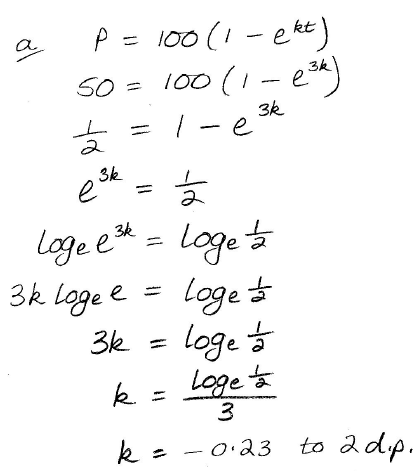 a P = 100 (1 - e^{kt})
50 = 100 (1 - e^{3k})
1/2 = 1 - e^{3k}
e^{3k} = 1/2
loge e^{3k} = loge 1/2
3k loge e = loge 1/2
3k = loge 1/2
k = loge 1/2 / 3
k = -0.23 to 2 d.p.